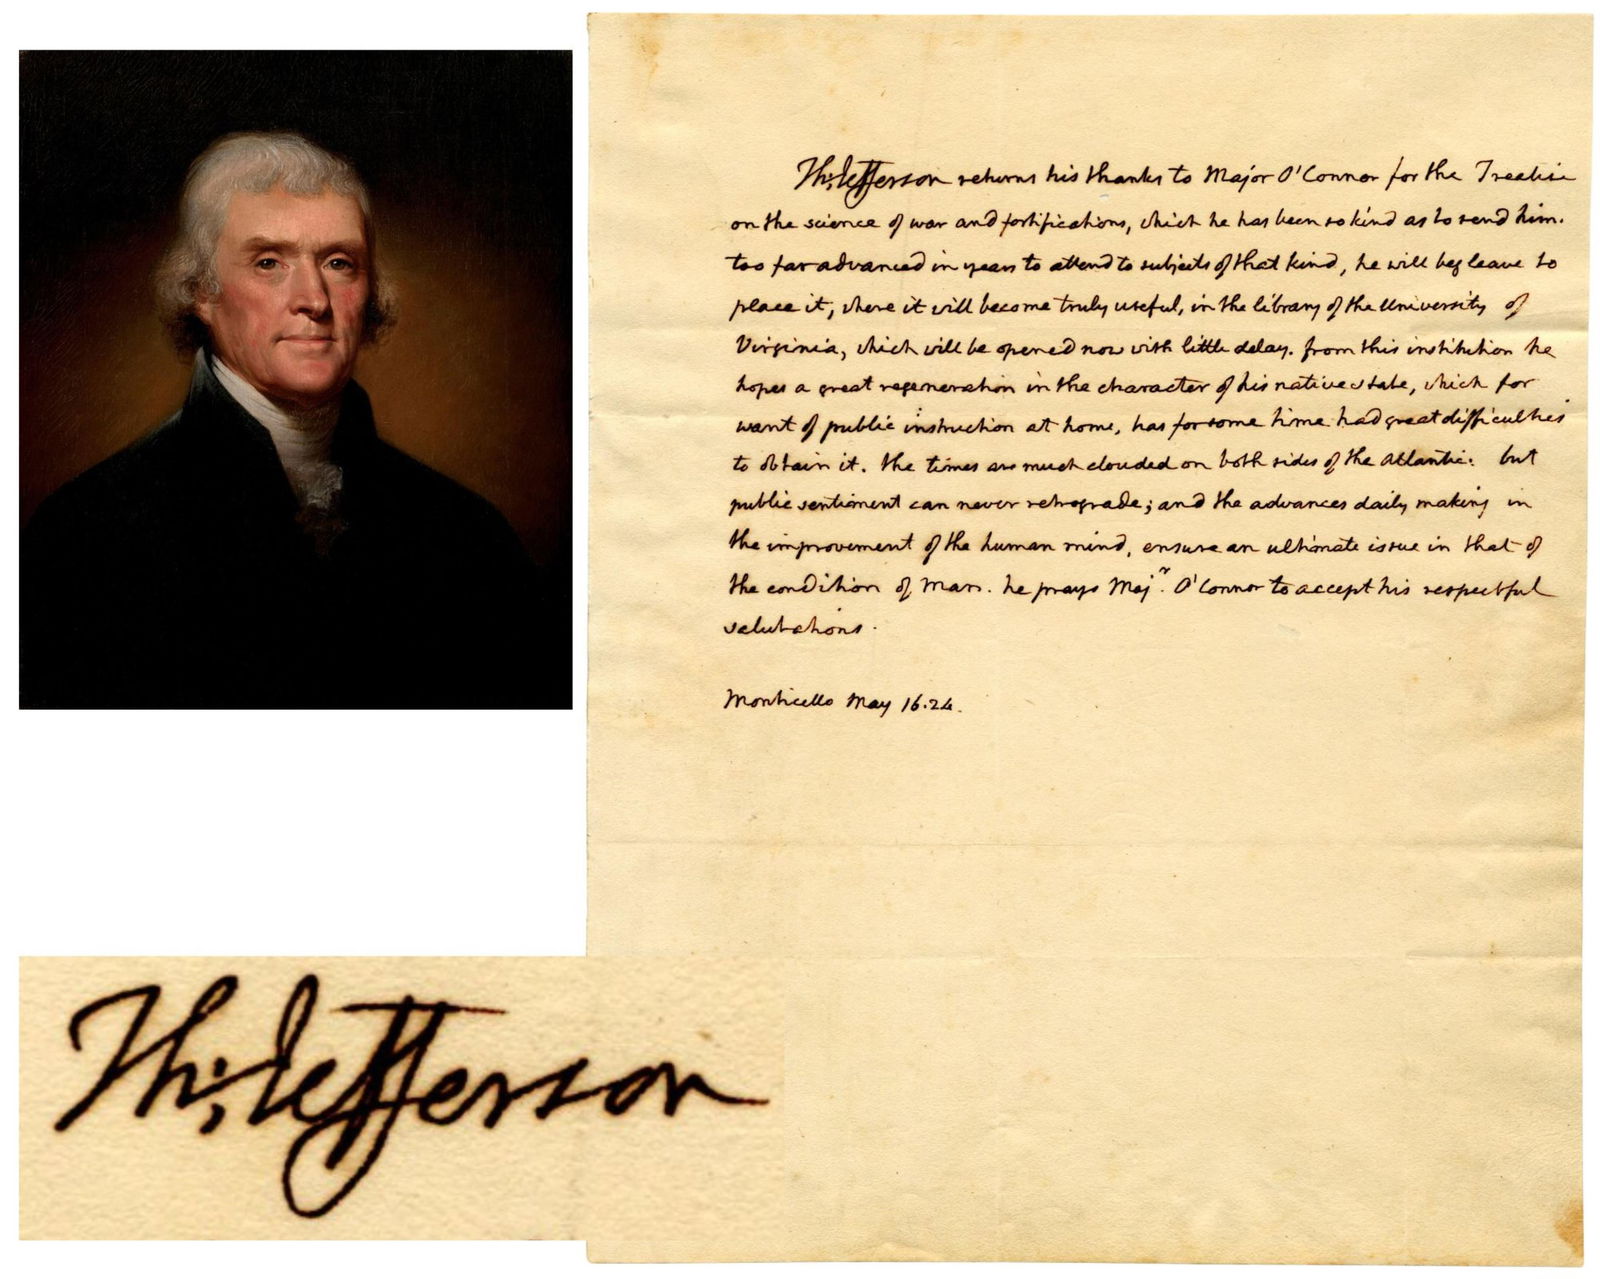 Th: Jefferson returns his thanks to Major O'Connor for the Treatise
on the science of war and fortifications, which he has been so kind as to send him.
too far advanced in years to attend to subjects of that kind, he will beg leave to
place it, where it will become truly useful, in the library of the University of
Virginia, which will be opened now with little delay. from this institution he
hopes a great regeneration in the character of his native state, which for
want of public instruction at home, has for some time had great difficulties
to obtain it. the times are much clouded on both sides of the Atlantic: but
public sentiment can never retrograde; and the advances daily making in
the improvement of the human mind, ensure an ultimate issue in that of
the condition of man. he prays Majr. O'Connor to accept his respectful
salutations.
Monticello May 16. 24.
Th: Jefferson